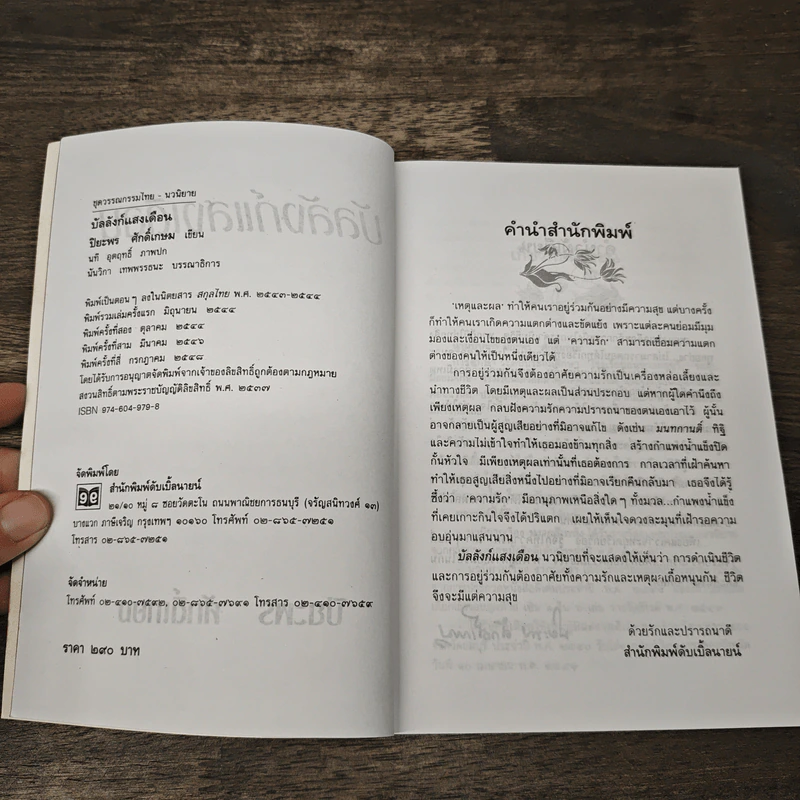 ชุดวรรณกรรมไทย - นวนิยาย
บัลลังก์แสงเดือน
ปิยะพร ศักดิ์เกษม เขียน
นที อุตฤทธิ์ ภาพปก
นันวิกา เทพพรรธนะ บรรณาธิการ
พิมพ์เป็นตอนๆ ลงในนิตยสาร สกุลไทย พ.ศ. ๒๕๔๓-๒๕๔๔
พิมพ์รวมเล่มครั้งแรก มิถุนายน ๒๕๔๔
พิมพ์ครั้งที่สอง ตุลาคม ๒๕๔๔
พิมพ์ครั้งที่สาม มีนาคม ๒๕๔๖
พิมพ์ครั้งที่สี่ กรกฎาคม ๒๕๔๘
โดยได้รับการอนุญาตจัดพิมพ์จากเจ้าของลิขสิทธิ์ถูกต้องตามกฎหมาย
สงวนสิทธิ์ตามพระราชบัญญัติลิขสิทธิ์ พ.ศ. ๒๕๓๗
ISBN 974-604-979-8
จัดพิมพ์โดย
๑๙ สำนักพิมพ์ดับเบิ้ลนายน์
๒๑/๑๐ หมู่ ๘ ซอยวัดตะโน ถนนพาณิชยการธนบุรี (จรัญสนิทวงศ์ ๑๓)
บางแวก ภาษีเจริญ กรุงเทพฯ ๑๐๑๖๐ โทรศัพท์ ๐๒-๘๖๕-๗๒๕๑
โทรสาร ๐๒-๘๖๕-๗๒๕๑
จัดจำหน่าย
โทรศัพท์ ๐๒-๔๑๐-๗๕๙๒, ๐๒-๘๖๕-๗๖๙๑ โทรสาร ๐๒-๔๑๐-๗๖๕๙
ราคา ๒๙๐ บาท
คำนำสำนักพิมพ์
'เหตุและผล' ทำให้คนเราอยู่ร่วมกันอย่างมีความสุข แต่บางครั้ง
ก็ทำให้คนเราเกิดความแตกต่างและขัดแย้ง เพราะแต่ละคนย่อมมีมุม
มองและเงื่อนไขของตนเอง แต่ 'ความรัก' สามารถเชื่อมความแตก
ต่างของคนให้เป็นหนึ่งเดียวได้
การอยู่ร่วมกันจึงต้องอาศัยความรักเป็นเครื่องหล่อเลี้ยงและ
นำทางชีวิต โดยมีเหตุและผลเป็นส่วนประกอบ แต่หากผู้ใดคำนึงถึง
เพียงเหตุผล กลบฝังความรักความปรารถนาของตนเองเอาไว้ ผู้นั้น
อาจกลายเป็นผู้สูญเสียอย่างที่มิอาจแก้ไข ดังเช่น มนทกานติ์ ทิฐิ
และความไม่เข้าใจทำให้เธอมองข้ามทุกสิ่ง สร้างกำแพงน้ำแข็งปิด
กั้นหัวใจ มีเพียงเหตุผลเท่านั้นที่เธอต้องการ กาลเวลาที่เฝ้าค้นหา
ทำให้เธอสูญเสียสิ่งหนึ่งไปอย่างที่มิอาจเรียกคืนกลับมา เธอจึงได้รู้
ซึ้งว่า 'ความรัก' มีอานุภาพเหนือสิ่งใดๆ ทั้งมวล...กำแพงน้ำแข็ง
ที่เคยเกาะกินใจจึงได้ปริแตก เผยให้เห็นใจดวงละมุนที่เฝ้ารอความ
อบอุ่นมาแสนนาน
บัลลังก์แสงเดือน นวนิยายที่จะแสดงให้เห็นว่า การดำเนินชีวิต
และการอยู่ร่วมกันต้องอาศัยทั้งความรักและเหตุผลเกื้อหนุนกัน ชีวิต
จึงจะมีแต่ความสุข
ด้วยรักและปรารถนาดี
สำนักพิมพ์ดับเบิ้ลนายน์